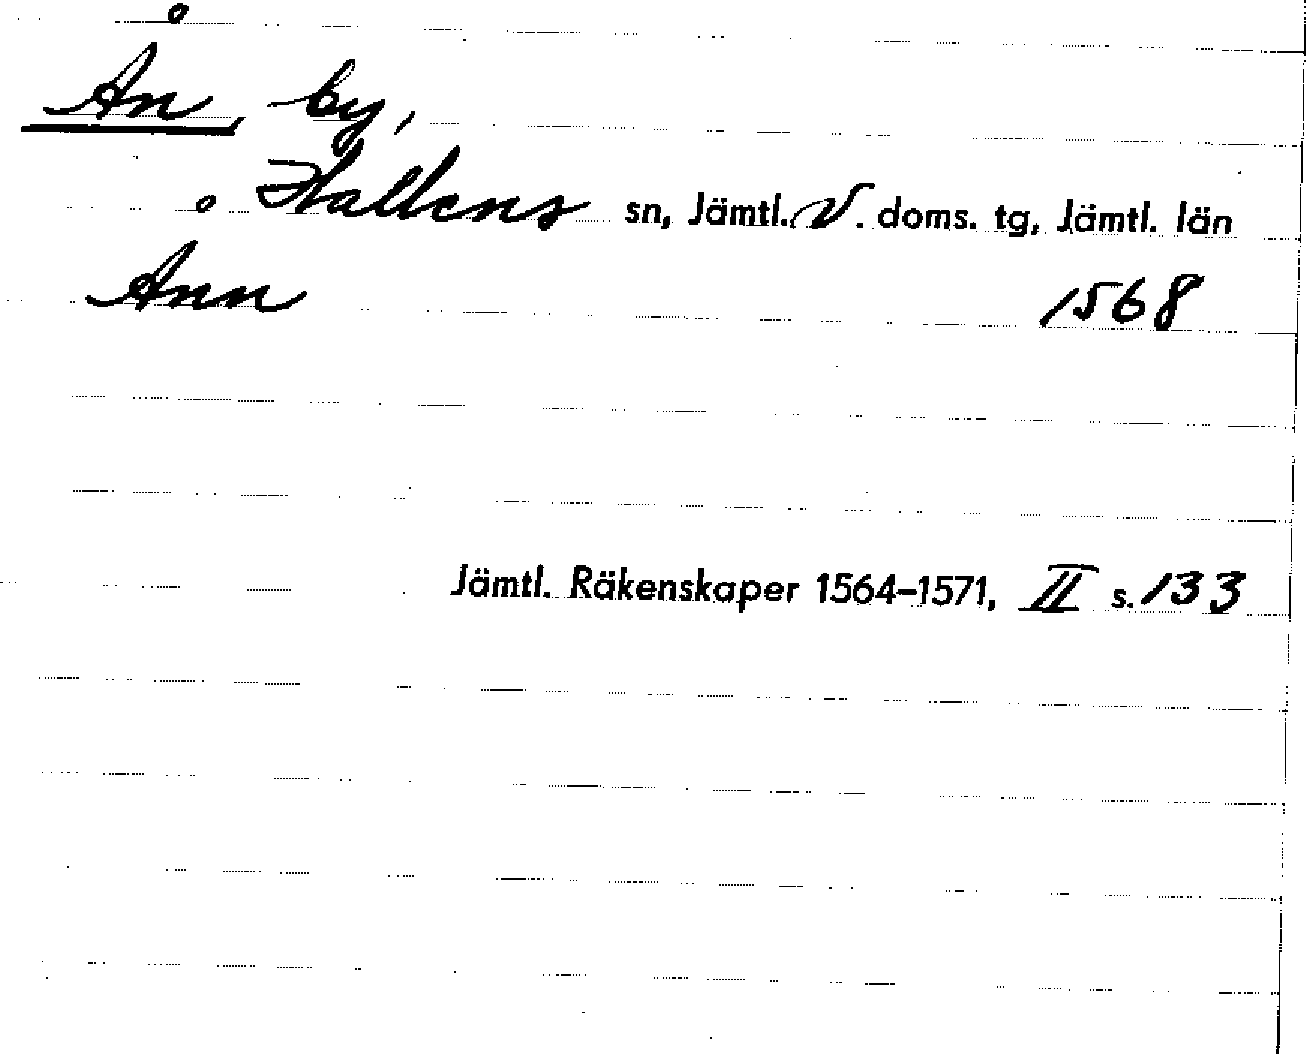 Ån, by,
Hallens sn, Jämtl. V. doms. tg, Jämtl. län
Ånn 1568
Jämtl. Räkenskaper 1564–1571, II s. 133